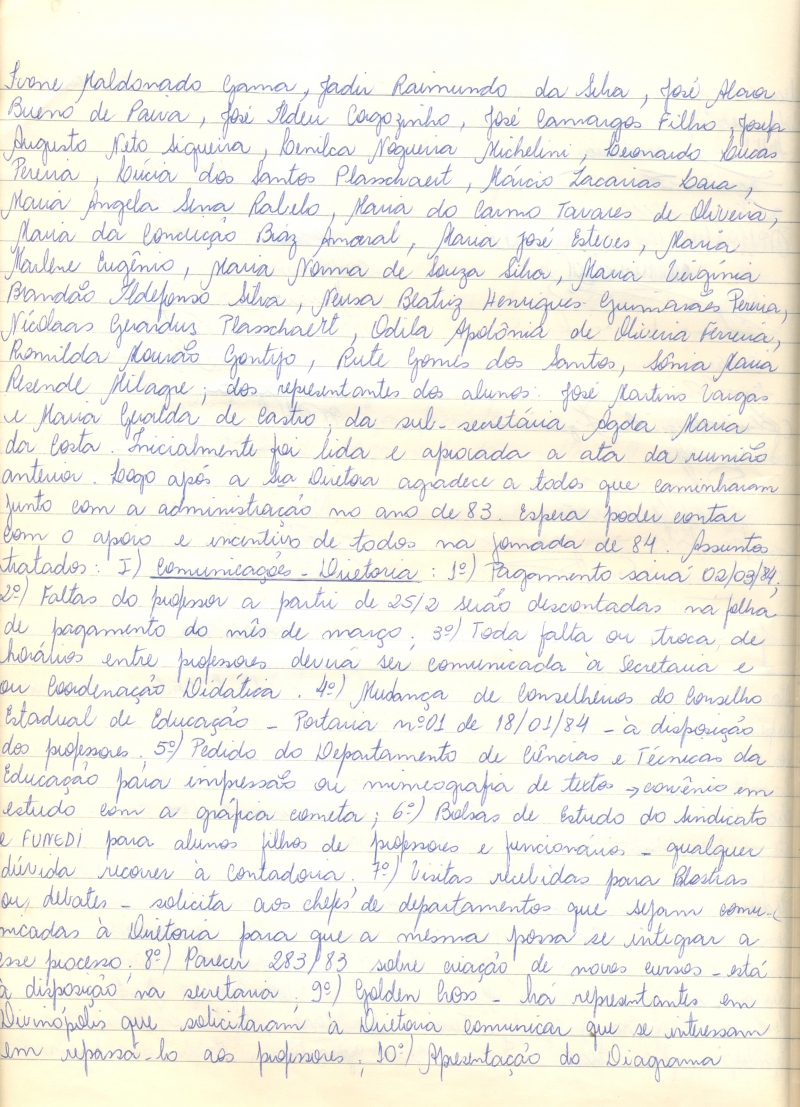 Ivone Maldonado Gama, Jadir Raimundo da Silva, José Alaor
Bueno de Paiva, José Ildeu Cagozinho, José Camargos Filho, Josefa
Augusto Neto Siqueira, Lenilca Nogueira Michelini, Leonardo Lucas
Pereira, Lúcia dos Santos Plasschaert, Márcio Zacarias Lara,
Maria Ângela Sena Rabelo, Maria do Carmo Tavares de Oliveira,
Maria da Conceição Bráz Amaral, Maria José Esteves, Maria
Marlene Eugênio, Maria Norma de Souza Silva, Maria Virgínia
Brandão Ildefonso Silva, Neusa Beatriz Henriques Guimarães Pereira,
Nicolaas Gerardus Plasschaert, Odila Apolônia de Oliveira Ferreira,
Romilda Mourão Gontijo, Rute Gomes dos Santos, Sônia Maria
Resende Milagre; dos representantes dos alunos: José Martins Vargas
e Maria Geralda de Castro; da sub-secretária Ágda Maria
da Costa. Inicialmente foi lida e aprovada a ata da reunião
anterior. Logo após a Sra Diretora agradece a todos que caminharam
junto com a administração no ano de 83. Espera poder contar
com o apoio e incentivo de todos na jornada de 84. Assuntos
tratados: I) Comunicações - Diretoria: 1º) Pagamento sairá 02/03/84;
2º) Faltas do professor a partir de 25/2 serão descontadas na folha
de pagamento do mês de março; 3º) Toda falta ou troca de
horários entre professores deverá ser comunicada à Secretaria e
ou Coordenação Didática. 4º) Mudança de Conselheiros do Conselho
Estadual de Educação - Portaria nº 01 de 18/01/84 - à disposição
dos professores; 5º) Pedido do Departamento de Ciências e Técnicas da
Educação para impressão ou mimeografia de textos → convênio em
estudo com a gráfica cometa; 6º) Bolsas de Estudo do Sindicato
e FUNEDI para alunos filhos de professores e funcionários - qualquer
dúvida recorrer à contadoria. 7º) Visitas recebidas para Palestras
ou debates - solicita aos chefes de departamentos que sejam comu-
nicadas à Diretoria para que a mesma possa se integrar a
esse processo; 8º) Parecer 283/83 sobre criação de novos cursos - está
à disposição na secretaria. 9º) Golden Cross - há representantes em
Divinópolis que solicitaram à Diretoria comunicar que se interessam
em repassá-lo aos professores; 10º) Apresentação do Diagrama